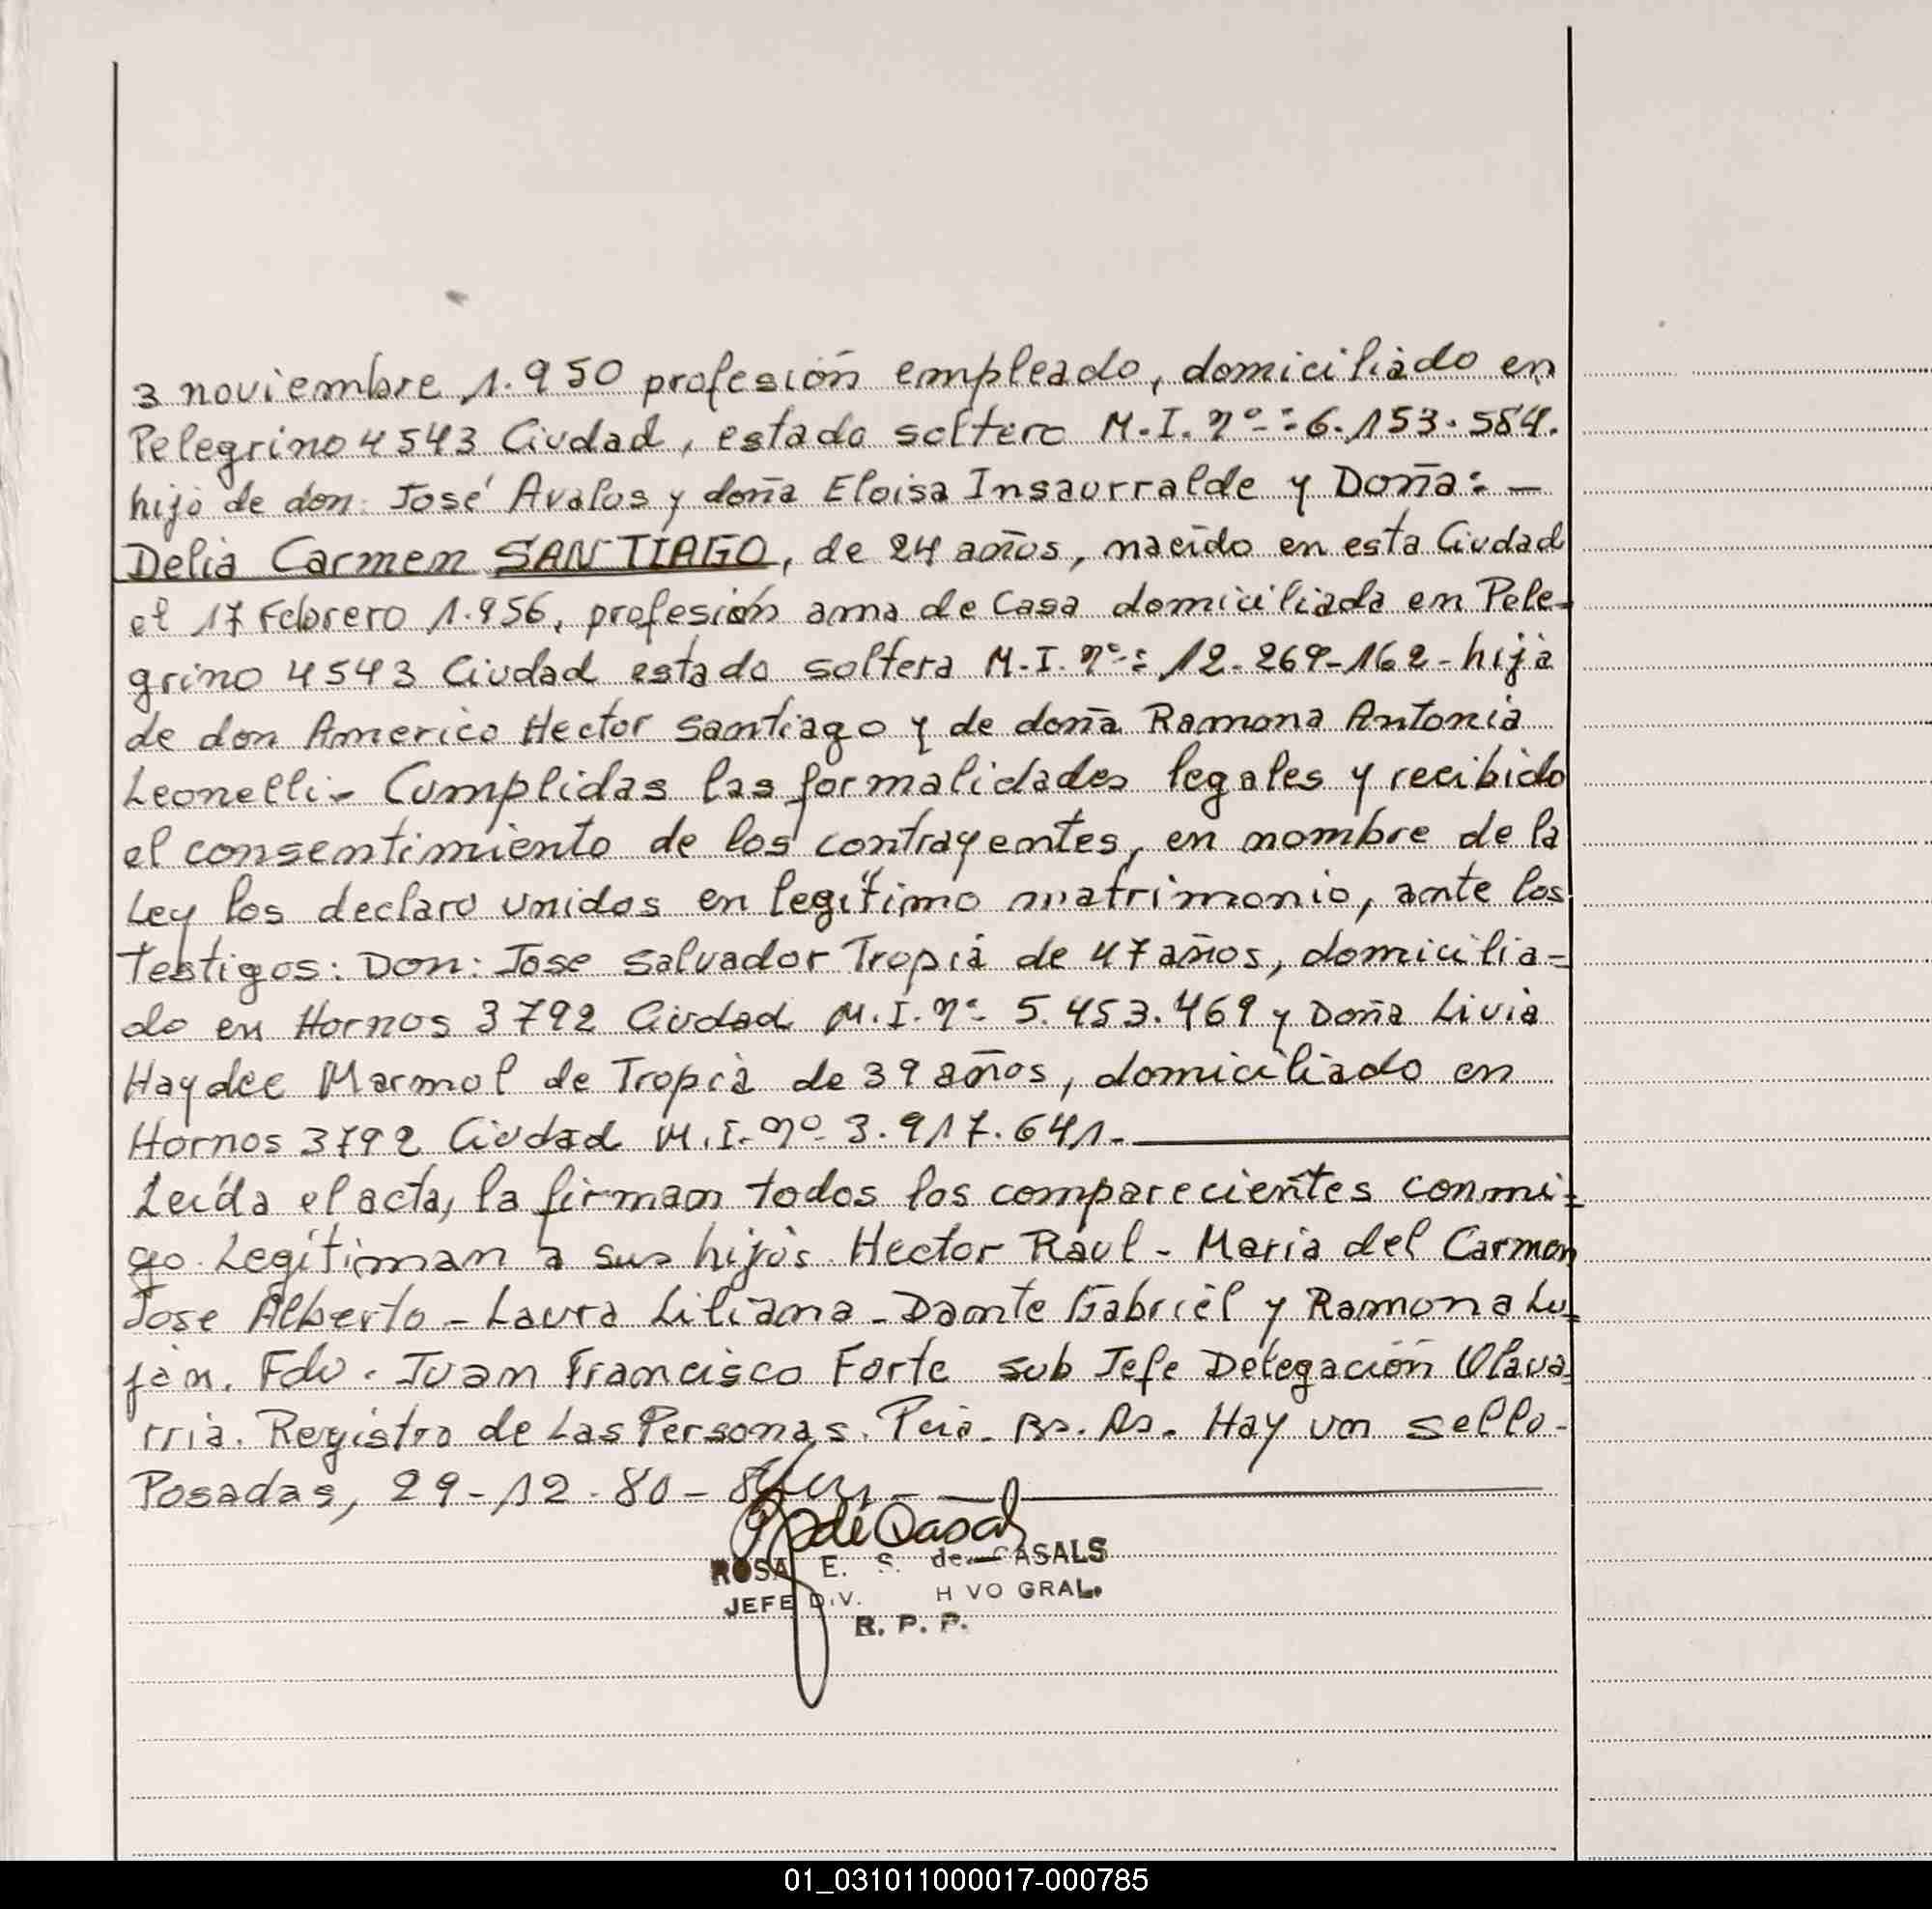 3 noviembre 1.950 profesión empleado, domiciliado en
Pelegrino 4543 Ciudad, estado soltero M.I. nº-:6.153.584.
hijo de don: José Avalos y doña Eloisa Insaurralde y Doña: —
Delia Carmen SANTIAGO, de 24 años, nacido en esta Ciudad
el 17 Febrero 1.956, profesión ama de Casa domiciliada en Pele-
grino 4543 Ciudad estado soltera M.I. nº-: 12-269-162-hija
de don Americo Hector Santiago y de doña Ramona Antonia
Leonelli.- Cumplidas las formalidades legales y recibido
el consentimiento de los contrayentes, en nombre de la
Ley los declaro unidos en legítimo matrimonio, ante los
Testigos: Don: Jose Salvador Tropia de 47 años, domicilia=
do en Hornos 3792 Ciudad M.I.nº- 5.453.469 y Doña Livia
Haydee Marmol de Tropia de 39 años, domiciliado en
Hornos 3792 Ciudad M.I.nº- 3.917.641.-
Leída el acta, la firman todos los comparecientes conmi=
go. Legítiman a sus hijos Hector Raul - Maria del Carmen
Jose Alberto - Laura Liliana - Dante Gabriel y Ramona Lu=
ján. Fdo. Juan Francisco Forte Sub Jefe Delegación Olava=
rria. Registro de Las Personas. Pcia. Bs. As. Hay un sello-
Posadas, 29-12-80-
ROSA E. S. de CASALS
JEFE DIV. H VO GRAL.
R. P. P.
01_031011000017-000785